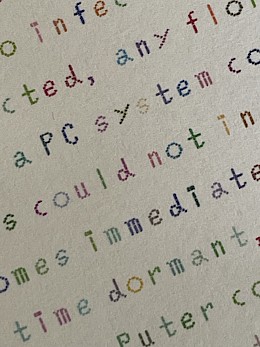 o infec
cted, any flo
a PC system co
s could not in
omes immediate
time dormant,
puter co